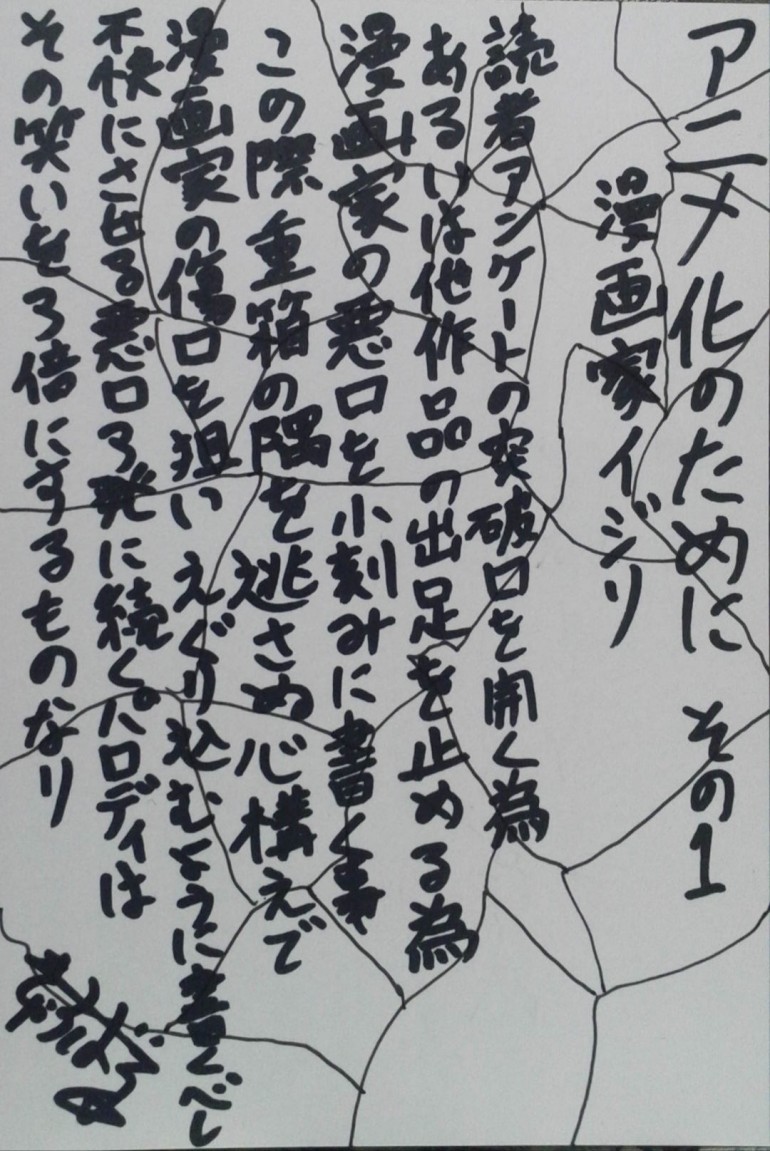 アニメ化のために その1
漫画家イジリ
読者アンケートの突破口を開く為
あるいは他作品の出足を止める為
漫画家の悪口を小刻みに書く事
この際重箱の隅を逃さぬ心構えで
漫画家の傷口を狙い えぐり込むように書くべし
不快にさせる悪口3発に続くパロディは
その笑いを3倍にするものなり